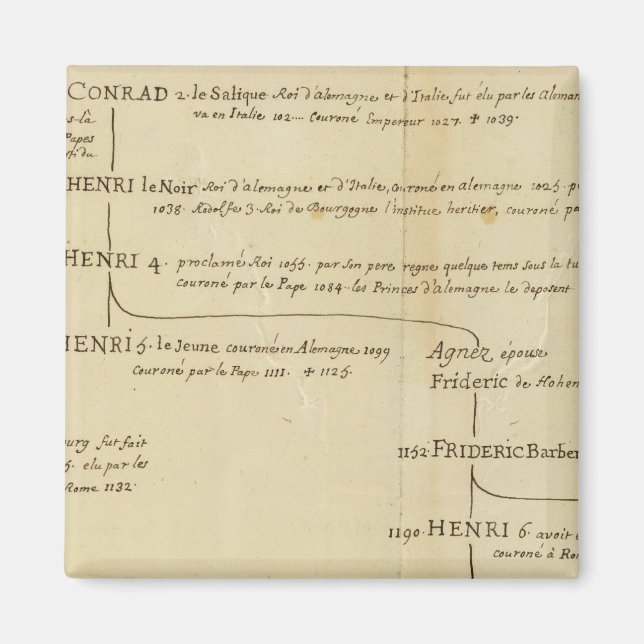 CONRAD 2. le Salique Roi d'alemagne et d'Italie fut élu par les Aleman
va en Italie 102.... Couroné Empereur 1027. ✝ 1039.
s-là
Papes
ti du
HENRI le Noir Roi d'alemagne et d'Italie, couroné en alemagne 1025. p
1038. Rodolfe 3. Roi de Bourgogne l'institue heritier, couroné pa
HENRI 4. proclamé Roi 1055. par son pere regne quelque tems sous la tu
couroné par le Pape 1084. les Princes d'alemagne le deposent
HENRI 5. le Jeune couroné en Alemagne 1099
couroné par le Pape 1111. ✝ 1125.
Agnez épouse
Frideric de Hohen
ourg fut fait
5. elu par les
Rome 1132.
1152. FRIDERIC Barber
1190. HENRI 6. avoit é
couroné à Ro